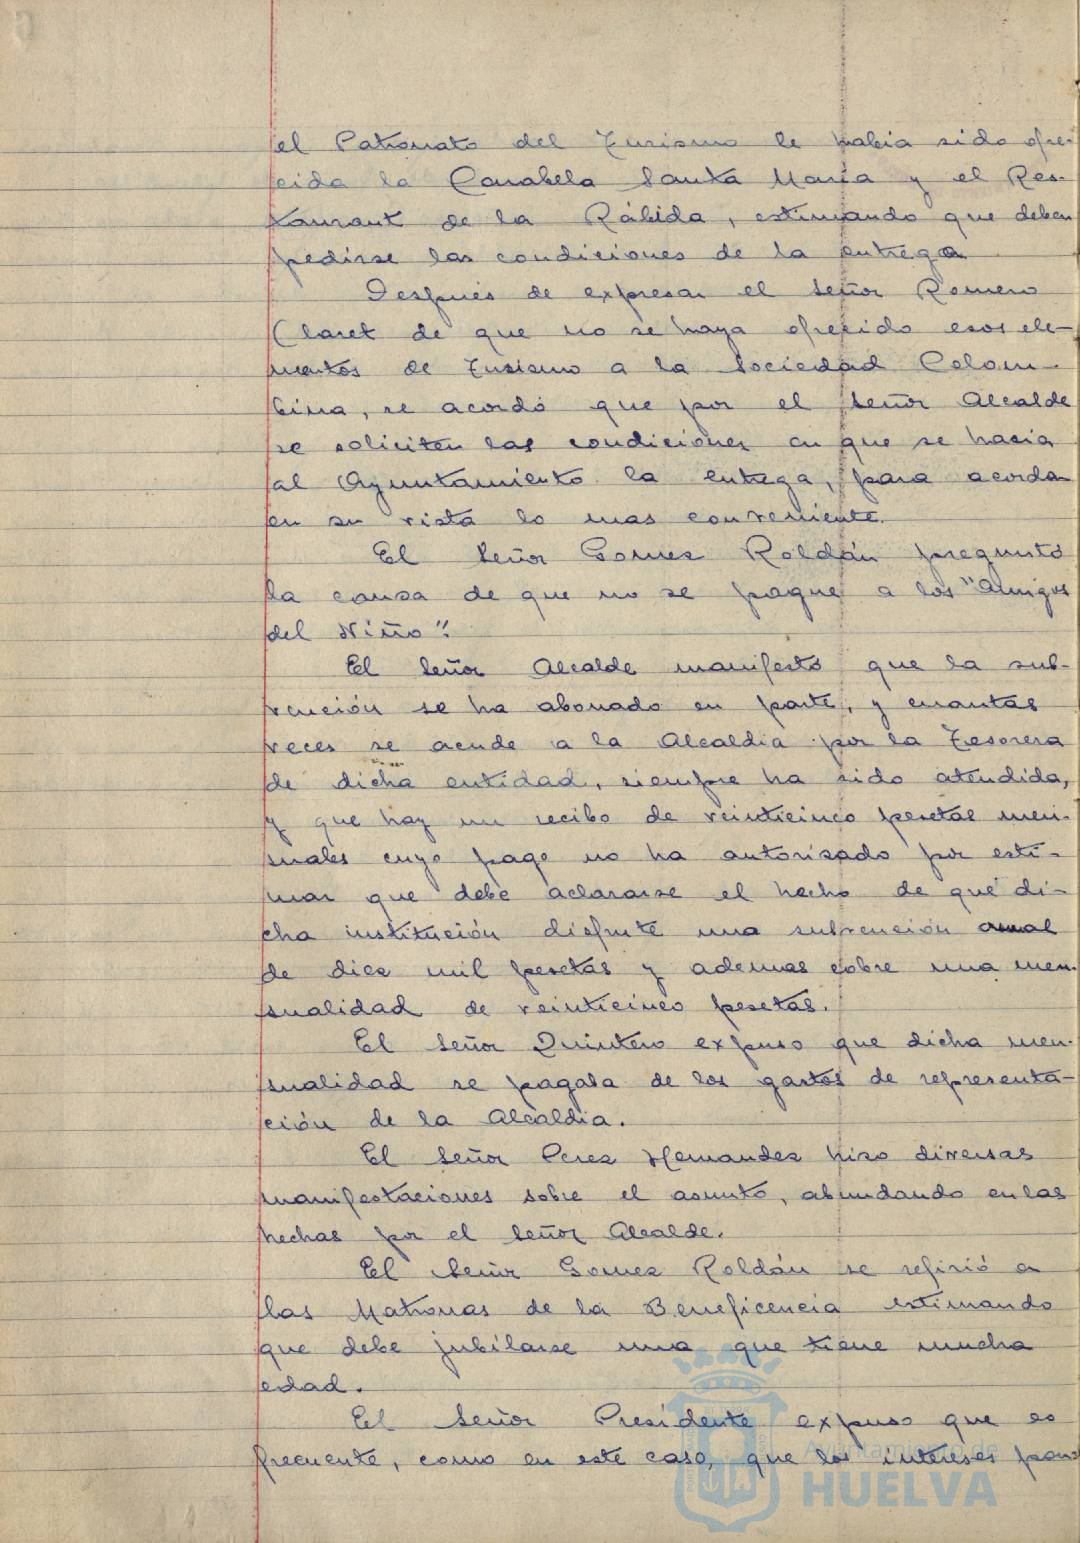 el Patronato del Turismo le habia sido ofre-
cida la Carabela Santa María y el Res-
taurant de la Rábida, estimando que deben
pedirse las condiciones de la entrega
Después de expresar el señor Romero
Claret de que no se haya ofrecido esos ele-
mentos de Turismo a la Sociedad Colom-
bina, se acordó que por el señor Alcalde
se soliciten las condiciones en que se hacia
al Ayuntamiento la entrega, para acordar
en su vista lo mas conveniente.
El Señor Gomez Roldán preguntó
la causa de que no se pague a los "Amigos
del Niño".
El Señor Alcalde manifestó que la sub-
vención se ha abonado en parte, y cuantas
veces se acude a la Alcaldia por la Tesorera
de dicha entidad, siempre ha sido atendida,
y que hay un recibo de veinticinco pesetas men-
suales cuyo pago no ha autorizado por esti-
mar que debe aclararse el hecho de que di-
cha institución disfrute una subvención anual
de diez mil pesetas y ademas cobre una men-
sualidad de veinticinco pesetas.
El Señor Quintero expuso que dicha men-
sualidad se pagaba de los gastos de representa-
ción de la Alcaldia.
El Señor Perez Hernandez hizo diversas
manifestaciones sobre el asunto, abundando en las
hechas por el señor Alcalde.
El Señor Gomez Roldán se refirió a
las Matronas de la Beneficencia estimando
que debe jubilarse una que tiene mucha
edad.
El Señor Presidente expuso que es
frecuente, como en este caso, que los intereses par-
Ayuntamiento de
HUELVA